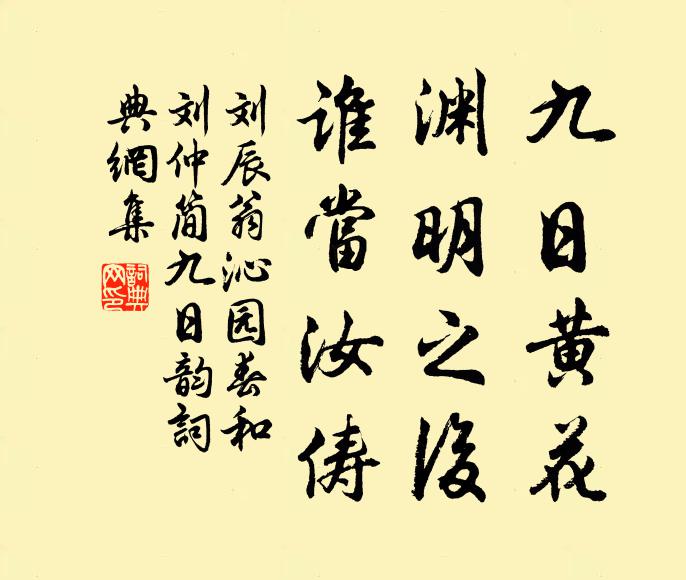 九日黄花
渊明之後
谁當汝俦
刘辰翁沁园春和
刘仲简九日韵詞
典網集
詞典网印